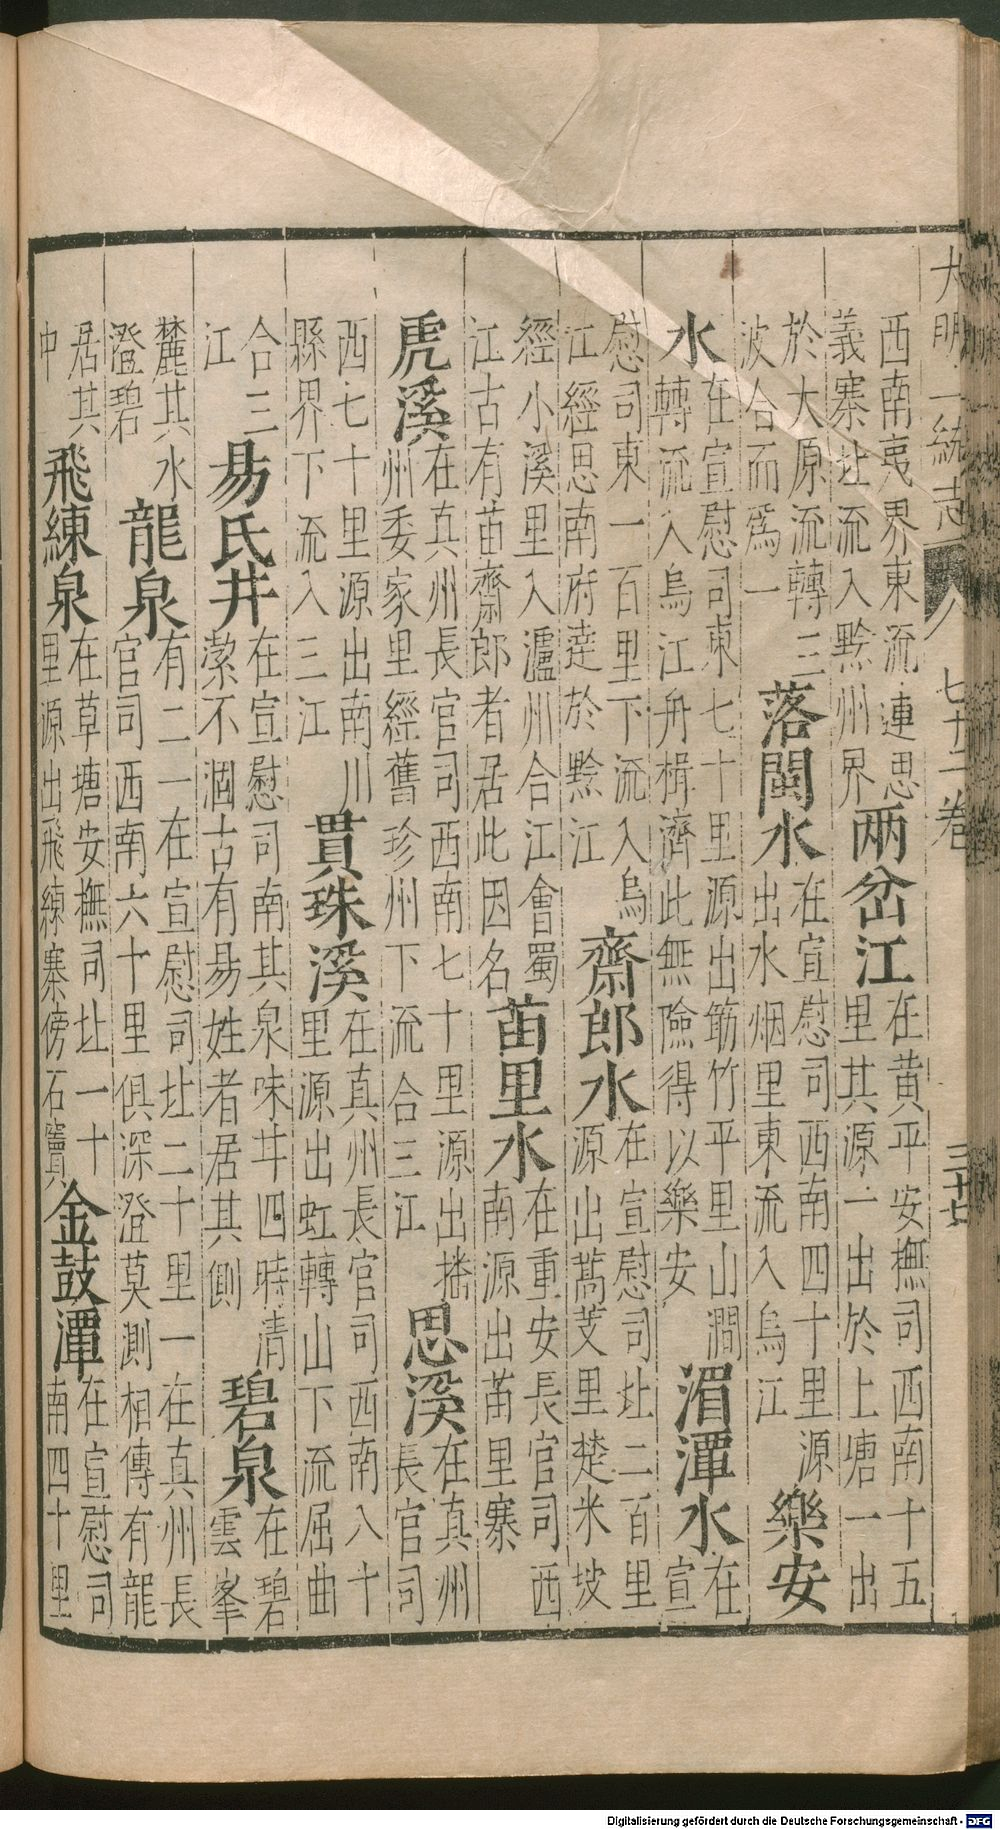 大明一統志 七十二卷 三十七
西南夷界東流連思
義寨北流入黔州界
兩岔江
在黄平安撫司西南十五
里其源一出於上塘一出
於大原流轉三
波合而爲一
落閩水
在宣慰司西南四十里源
出水烟里東流入烏江
樂安
水
在宣慰司東七十里源出筯竹平里山澗
轉流入烏江舟楫濟此無險得以樂安
湄潭水
在
宣
慰司東一百里下流入烏
江經思南府達於黔江
齋郎水
在宣慰司北二百里
源出蒿芰里楚米坡
經小溪里入瀘州合江會蜀
江古有苗齋郎者居此因名
苗里水
在重安長官司西
南源出苗里寨
虎溪
在真州長官司西南七十里源出播
州委家里經舊珍州下流合三江
思溪
在真州
長官司
西七十里源出南川
縣界下流入三江
貫珠溪
在真州長官司西南八十
里源出虹轉山下流屈曲
合三
江
易氏井
在宣慰司南其泉味甘四時清
瀠不涸古有易姓者居其側
碧泉
在碧
雲峯
麓其水
澄碧
龍泉
有二一在宣慰司北二十里一在真州長
官司西南六十里俱深澄莫測相傳有龍
居其
中
飛練泉
在草塘安撫司北一十
里源出飛練寨傍石竇
金鼓潭
在宣慰司
南四十里
Digitalisierung gefördert durch die Deutsche Forschungsgemeinschaft - DFG